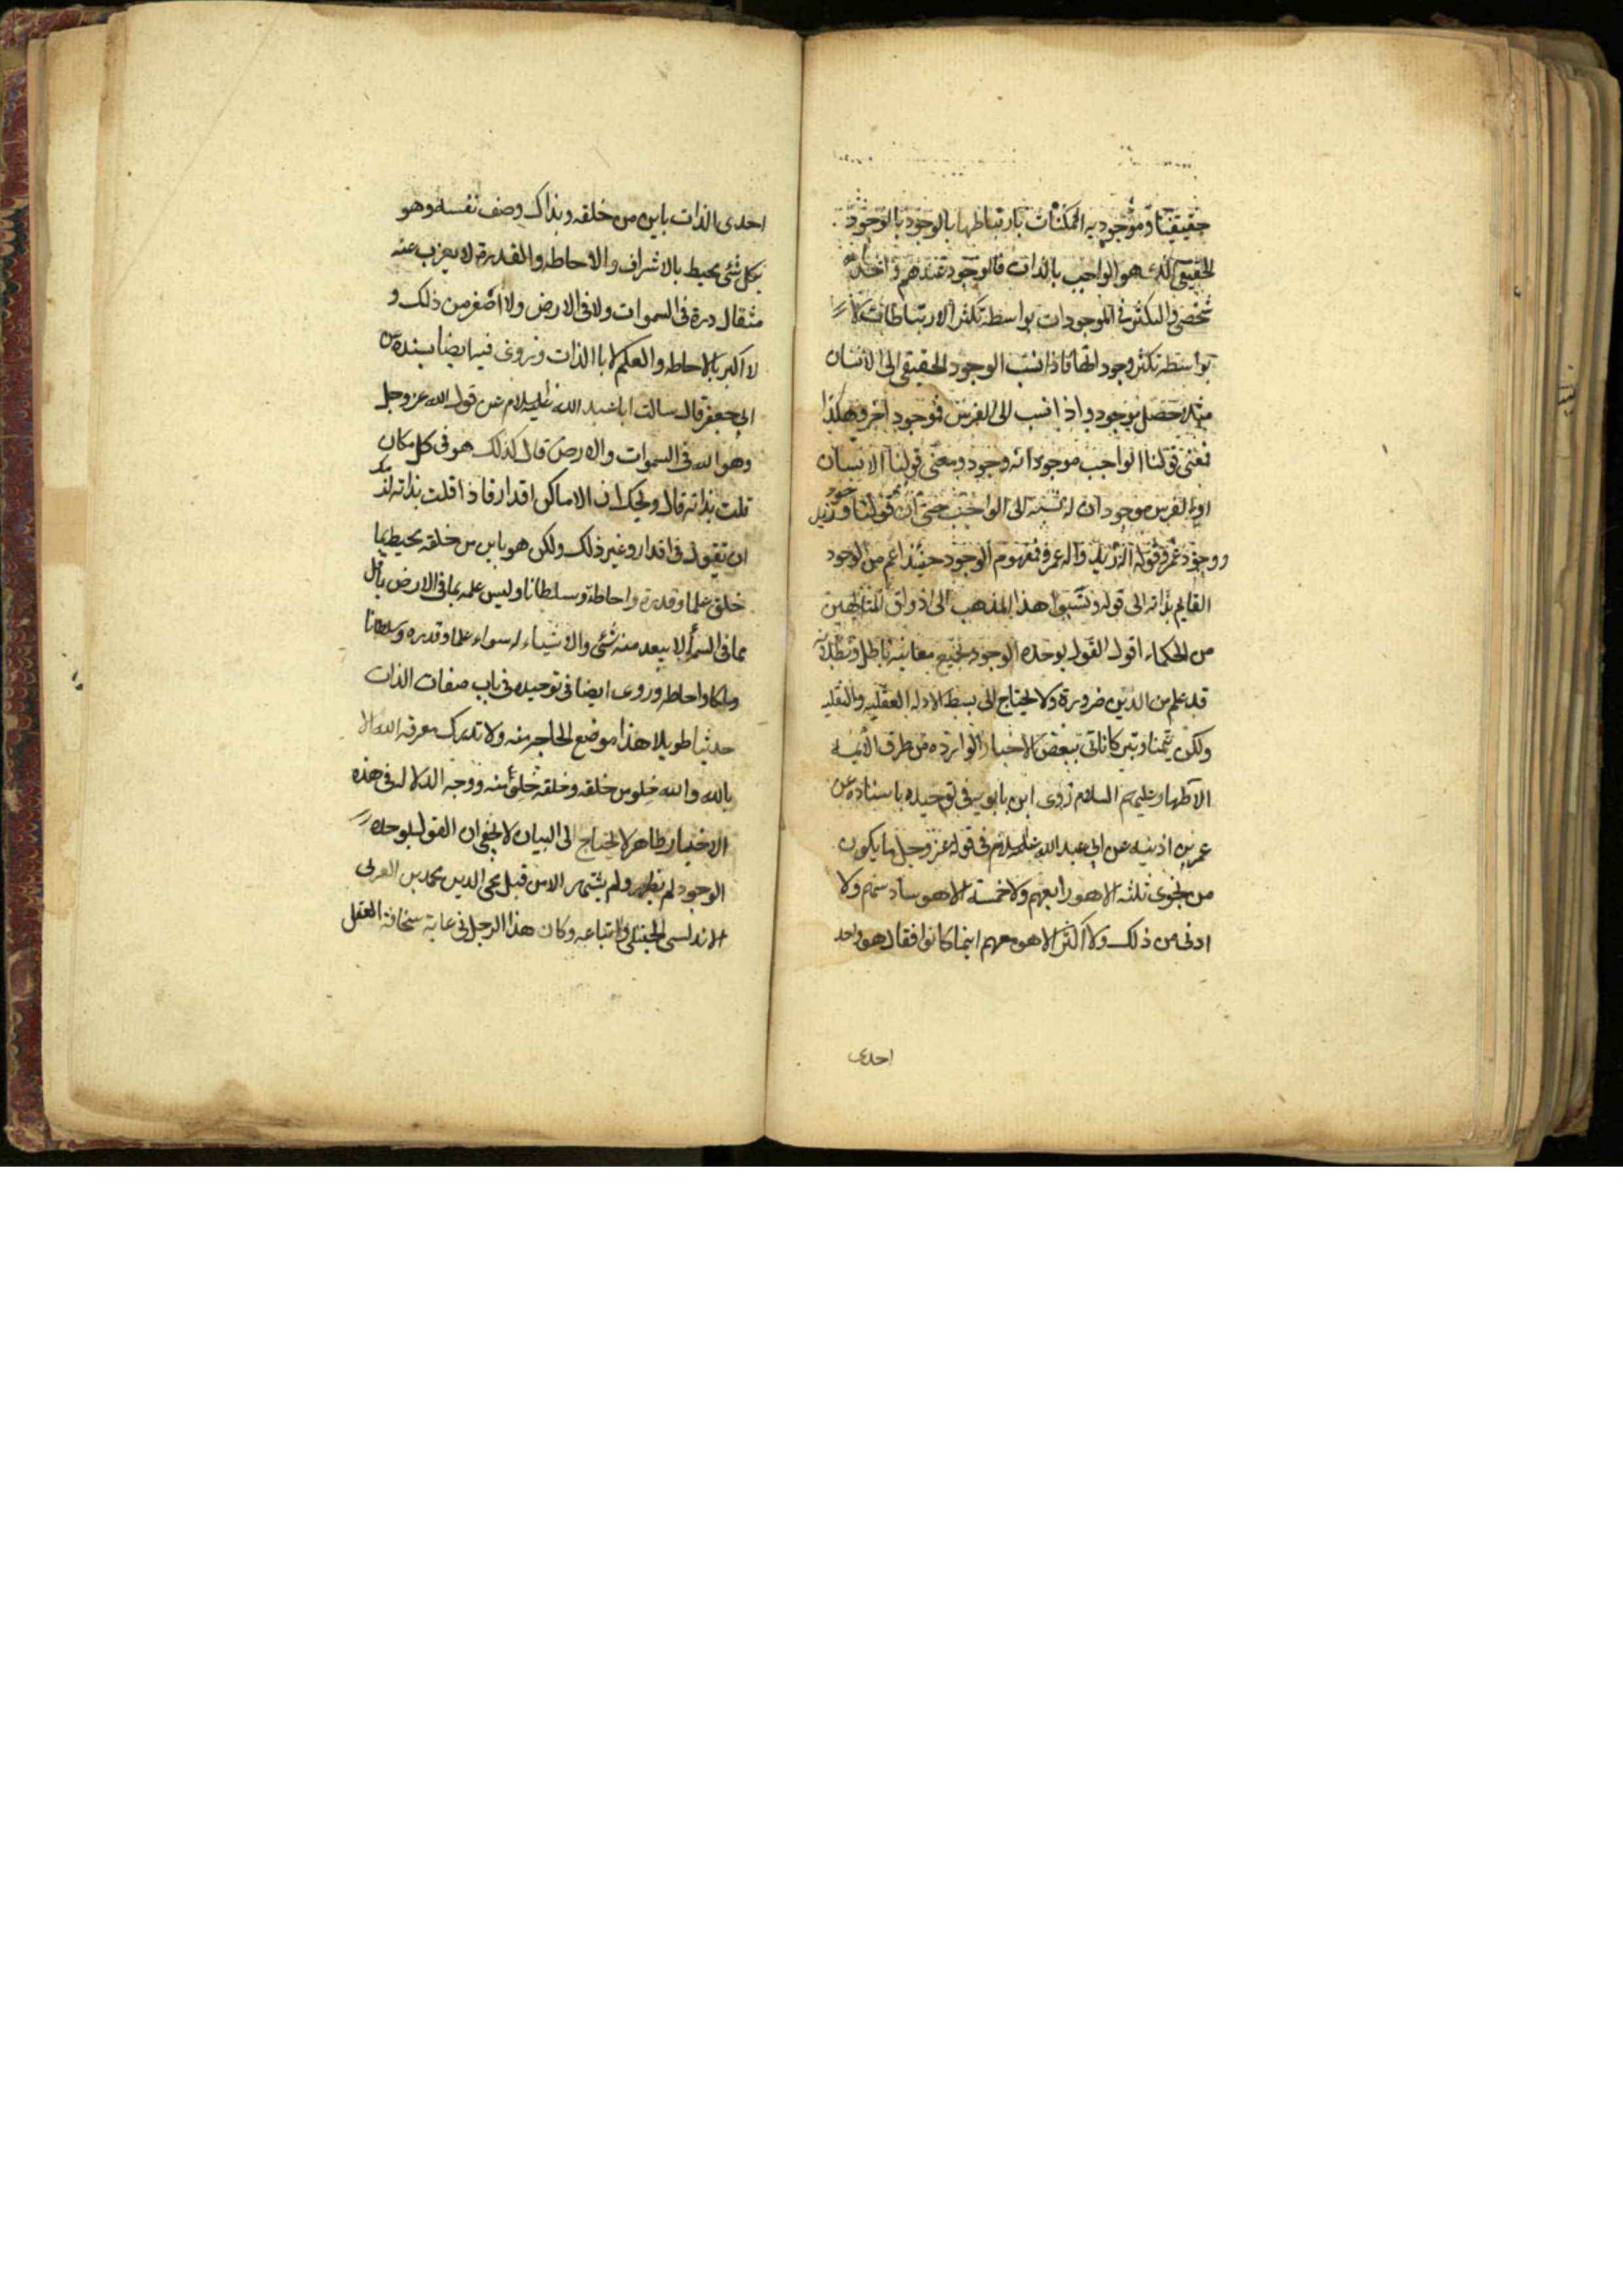 حقيقيتا وموجوديه الممكنات بارتباطها بالوجود بالوجود
الحقيقى الذى هو الواجب بالذات فالوجود عندهم واحد
شخصى والتكثر فى الموجودات بواسطه تكثر الارتباطات لا
بواسطه تكثر وجوداتها فاذا نسب الوجود الحقيقى الى الانسان
مثلا حصل موجود واذا نسب الى الفرس فموجود اخر وهكذا
فمعنى قولنا الواجب موجود انه وجود ومعنى قولنا الانسان
او الفرس موجود ان له نسبه الى الواجب حتى ان قولنا وجود زيد
ووجود عمرو قوله اله زيد واله عمرو فمفهوم الوجود حينئذ اعم من الوجود
القايم بذاته الى قوله ونسبوا هذا المذهب الى اذواق المتالهين
من الحكماء اقول القول بوحده الوجود بجميع معانيه باطل وبطلانه
قد علم من الدين ضرورة ولا يحتاج الى بسط الادله العقليه والنقليه
ولكن تيمنا وتبركا ناتى ببعض الاخبار الوارده من طرف الايمه
الاطهار عليهم السلام روى ابن بابويه فى توحيده باسناده عن
عمر بن اذينه عن ابى عبد الله عليه السلام فى قوله عز وجل ما يكون
من نجوى ثلثه الا هو رابعهم ولا خمسة الا هو سادسهم ولا
ادنى من ذلك ولا اكثر الا هو معهم اينما كانوا فقال هو واحد
احدى
احدى الذات باين من خلقه وبذاك وصف نفسه وهو
بكل شئ محيط بالاشراف والاحاطه والقدرة لا يعزب عنه
مثقال ذرة فى السموات ولا فى الارض ولا اصغر من ذلك و
لا اكبر بالاحاطه والعلم لا بالذات وروى فيه ايضا بسنده عن
ابى جعفر قال سالت ابا عبد الله عليه السلام عن قول الله عز وجل
وهو الله فى السموات والارض قال كذلك هو فى كل مكان
قلت بذاته قال ويحك ان الاماكن اقدار فاذا قلت بذاته لزمك
ان تقول فى اقدار وغير ذلك ولكن هو باين من خلقه محيط بما
خلق علما وقدرة واحاطة وسلطانا وليس علمه بما فى الارض باقل
مما فى السماء لا يبعد منه شئ والاشياء له سواء علما وقدره وسلطانا
وملكا واحاطه وروى ايضا فى توحيده فى باب صفات الذات
حديثا طويلا هذا موضع الحاجه منه ولا تدرك معرفه الله الا
بالله والله خلو من خلقه وخلقه خلو منه ووجه الدلاله فى هذه
الاخبار ظاهر لا يحتاج الى البيان لا يخفى ان القول بوحده
الوجود لم يظهر ولم يشتهر الا من قبل محى الدين محمد بن العربى
الاندلسى الحنبلى واتباعه وكان هذا الرجل فى غاية سخافة العقل